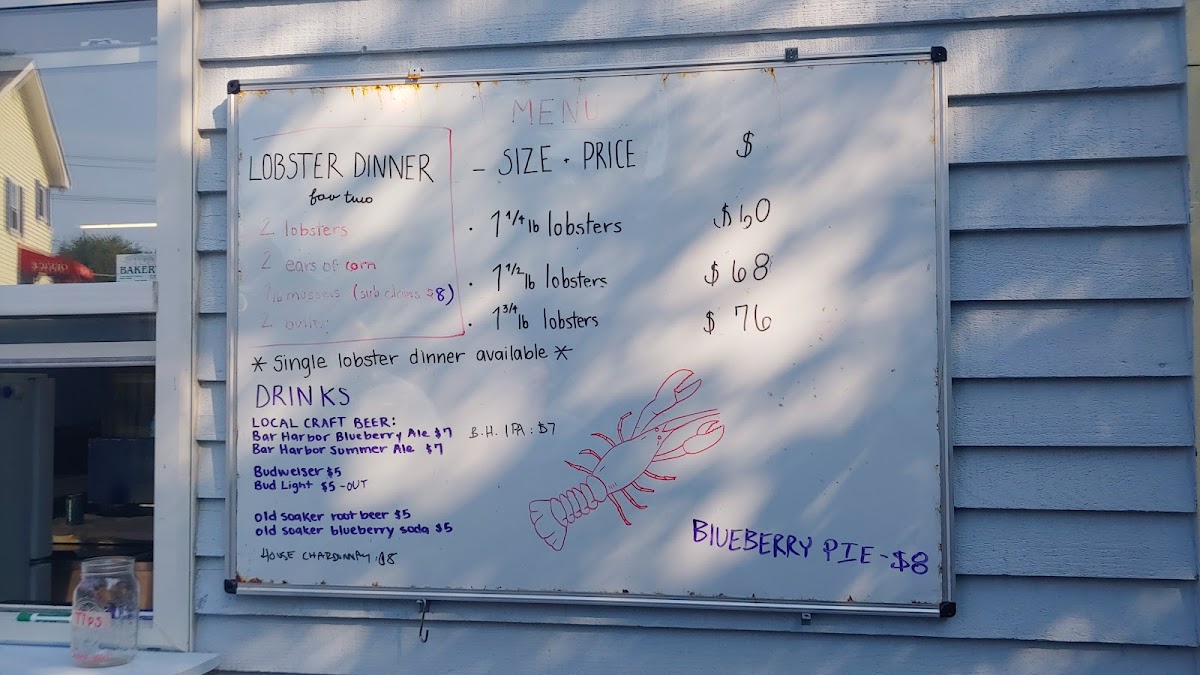 MENU
LOBSTER DINNER
for two
2 lobsters
2 ears of corn
1 lb mussels (sub clams $8)
2
* Single lobster dinner available *
- SIZE · PRICE $
· 1 1/4 lb lobsters $60
· 1 1/2 lb lobsters $68
· 1 3/4 lb lobsters $76
DRINKS
LOCAL CRAFT BEER:
Bar Harbor Blueberry Ale $7
Bar Harbor Summer Ale $7
B.H. IPA: $7
Budweiser $5
Bud Light $5 - OUT
old soaker root beer $5
old soaker blueberry soda $5
HOUSE CHARDONNAY: $8
BLUEBERRY PIE - $8
TIPS
OFFICE
BAKERY